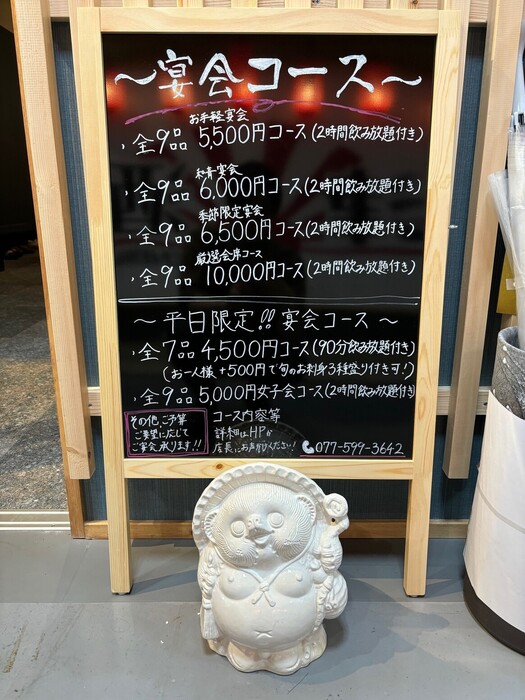 ～宴会コース～
お手軽宴会
・全9品 5,500円コース(2時間飲み放題付き)
宴会
・全9品 6,000円コース(2時間飲み放題付き)
季節限定宴会
・全9品 6,500円コース(2時間飲み放題付き)
厳選会席コース
・全9品 10,000円コース(2時間飲み放題付き)
～平日限定!! 宴会コース～
・全7品 4,500円コース(90分飲み放題付き)
(お一人様+500円で旬のお刺身3種盛り付き可!)
・全9品 5,000円女子会コース(2時間飲み放題付き)
その他、ご予算
ご要望に応じて
ご宴会承ります!!
コース内容等
詳細はHPか
店長にお声がけください!
077-599-3642